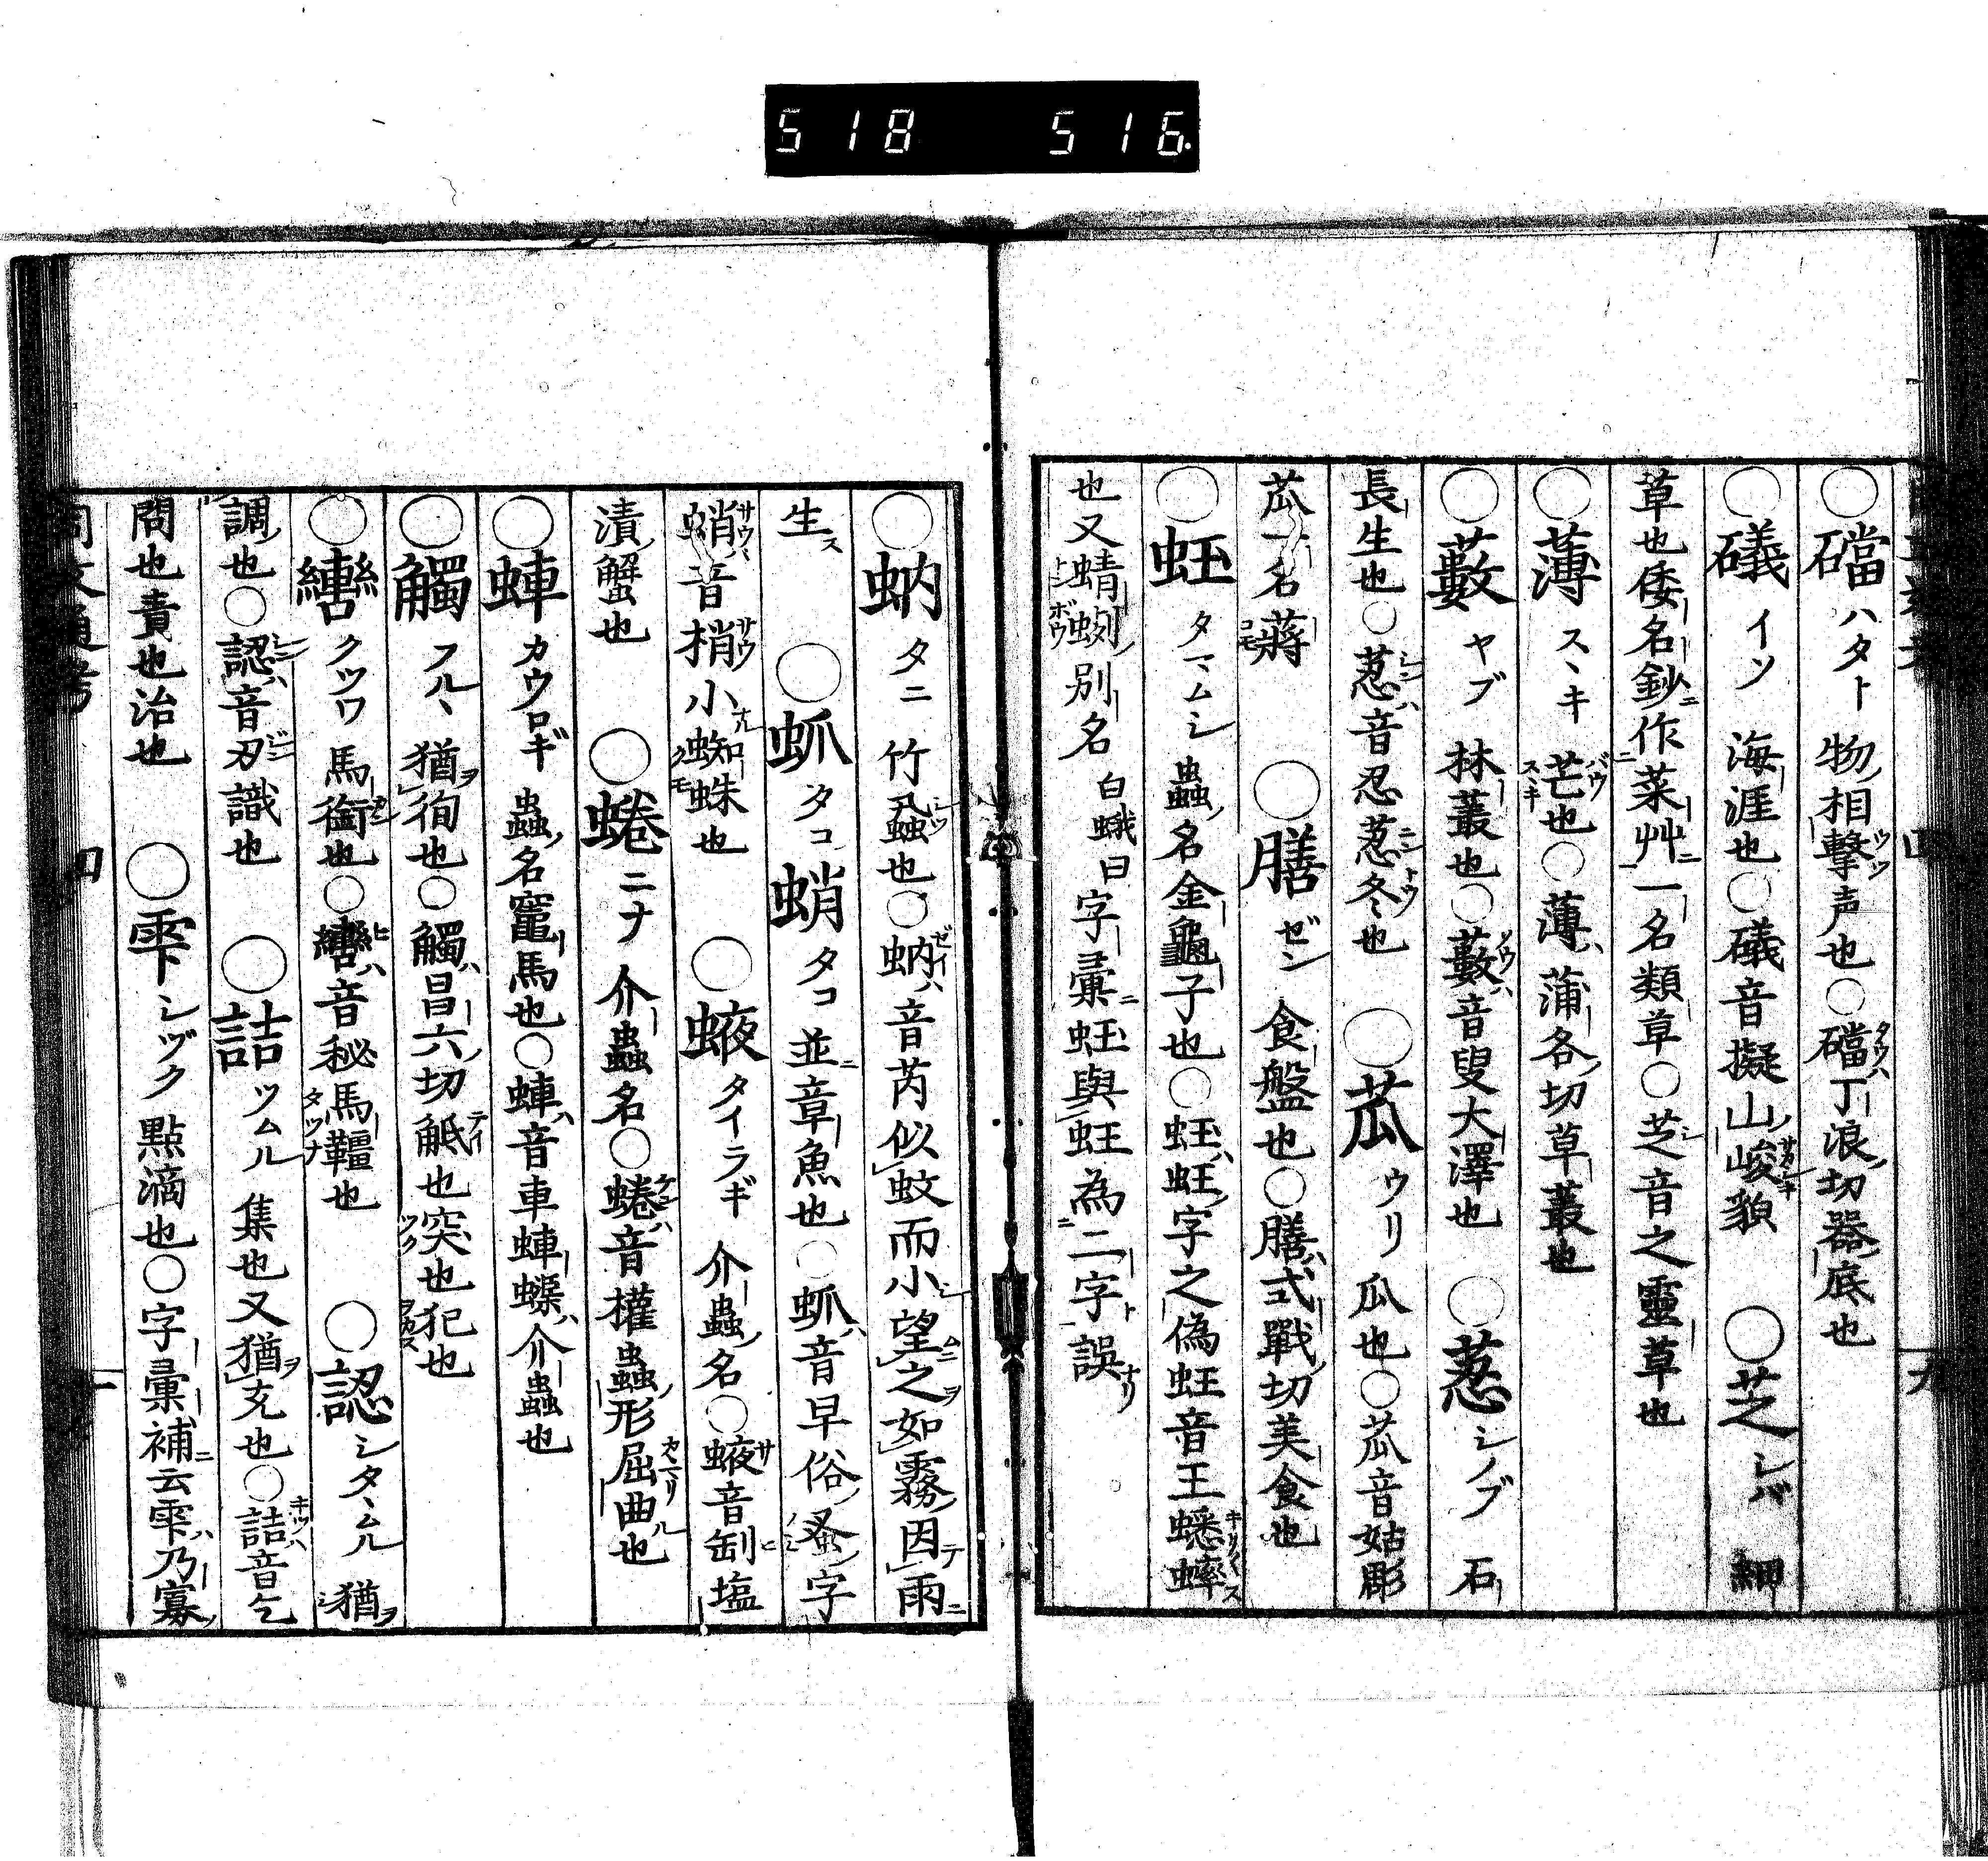 518 516
○礑 ハタト 物相撃声也○礑丁浪切器底也
○礒 イソ 海涯也○礒音擬山峻貌 ○芝 シバ 細
草也倭名鈔作菜艸一名類草○芝音之靈草也
○薄 スヽキ 芒也○薄蒲各切草叢也
○藪 ヤブ 林叢也○藪音叟大澤也 ○荵 シノブ 石
長生也○荵音忍荵冬也 ○苽 ウリ 瓜也○苽音姑彫
苽一名蔣 ○膳 ゼン 食盤也○膳式戰切美食也
○䖯 タマムシ 蟲名金龜子也○䖯蚟字之偽蚟音王蟋蟀
也又蜻蛚別名 白蛾曰字彙䖯與蚟為二字誤
○蚋 タニ 竹蝨也○蚋音芮似蚊而小望之如霧因雨
生 ○蛌 タコ 蛸 タコ 並章魚也○蛌音早俗蚤字
蛸音梢小蜘蛛也 ○蝂 タイラギ 介蟲名○蝂音缷塩
漬蟹也 ○蜷 ニナ 介蟲名○蜷音權蟲形屈曲也
○蛼 カウロギ 蟲名竈馬也○蛼音車蛼螯介蟲也
○觸 フルヽ 猶徇也○觸昌六切觝也突也犯也
○轡 クツワ 馬銜也○轡音秘馬韁也 ○認 シタヽムル 猶
調也○認音刃識也 ○詰 ツムル 集也又猶充也○詰音乞
問也責也治也 ○雫 シヅク 點滴也○字彙補云雫乃寡